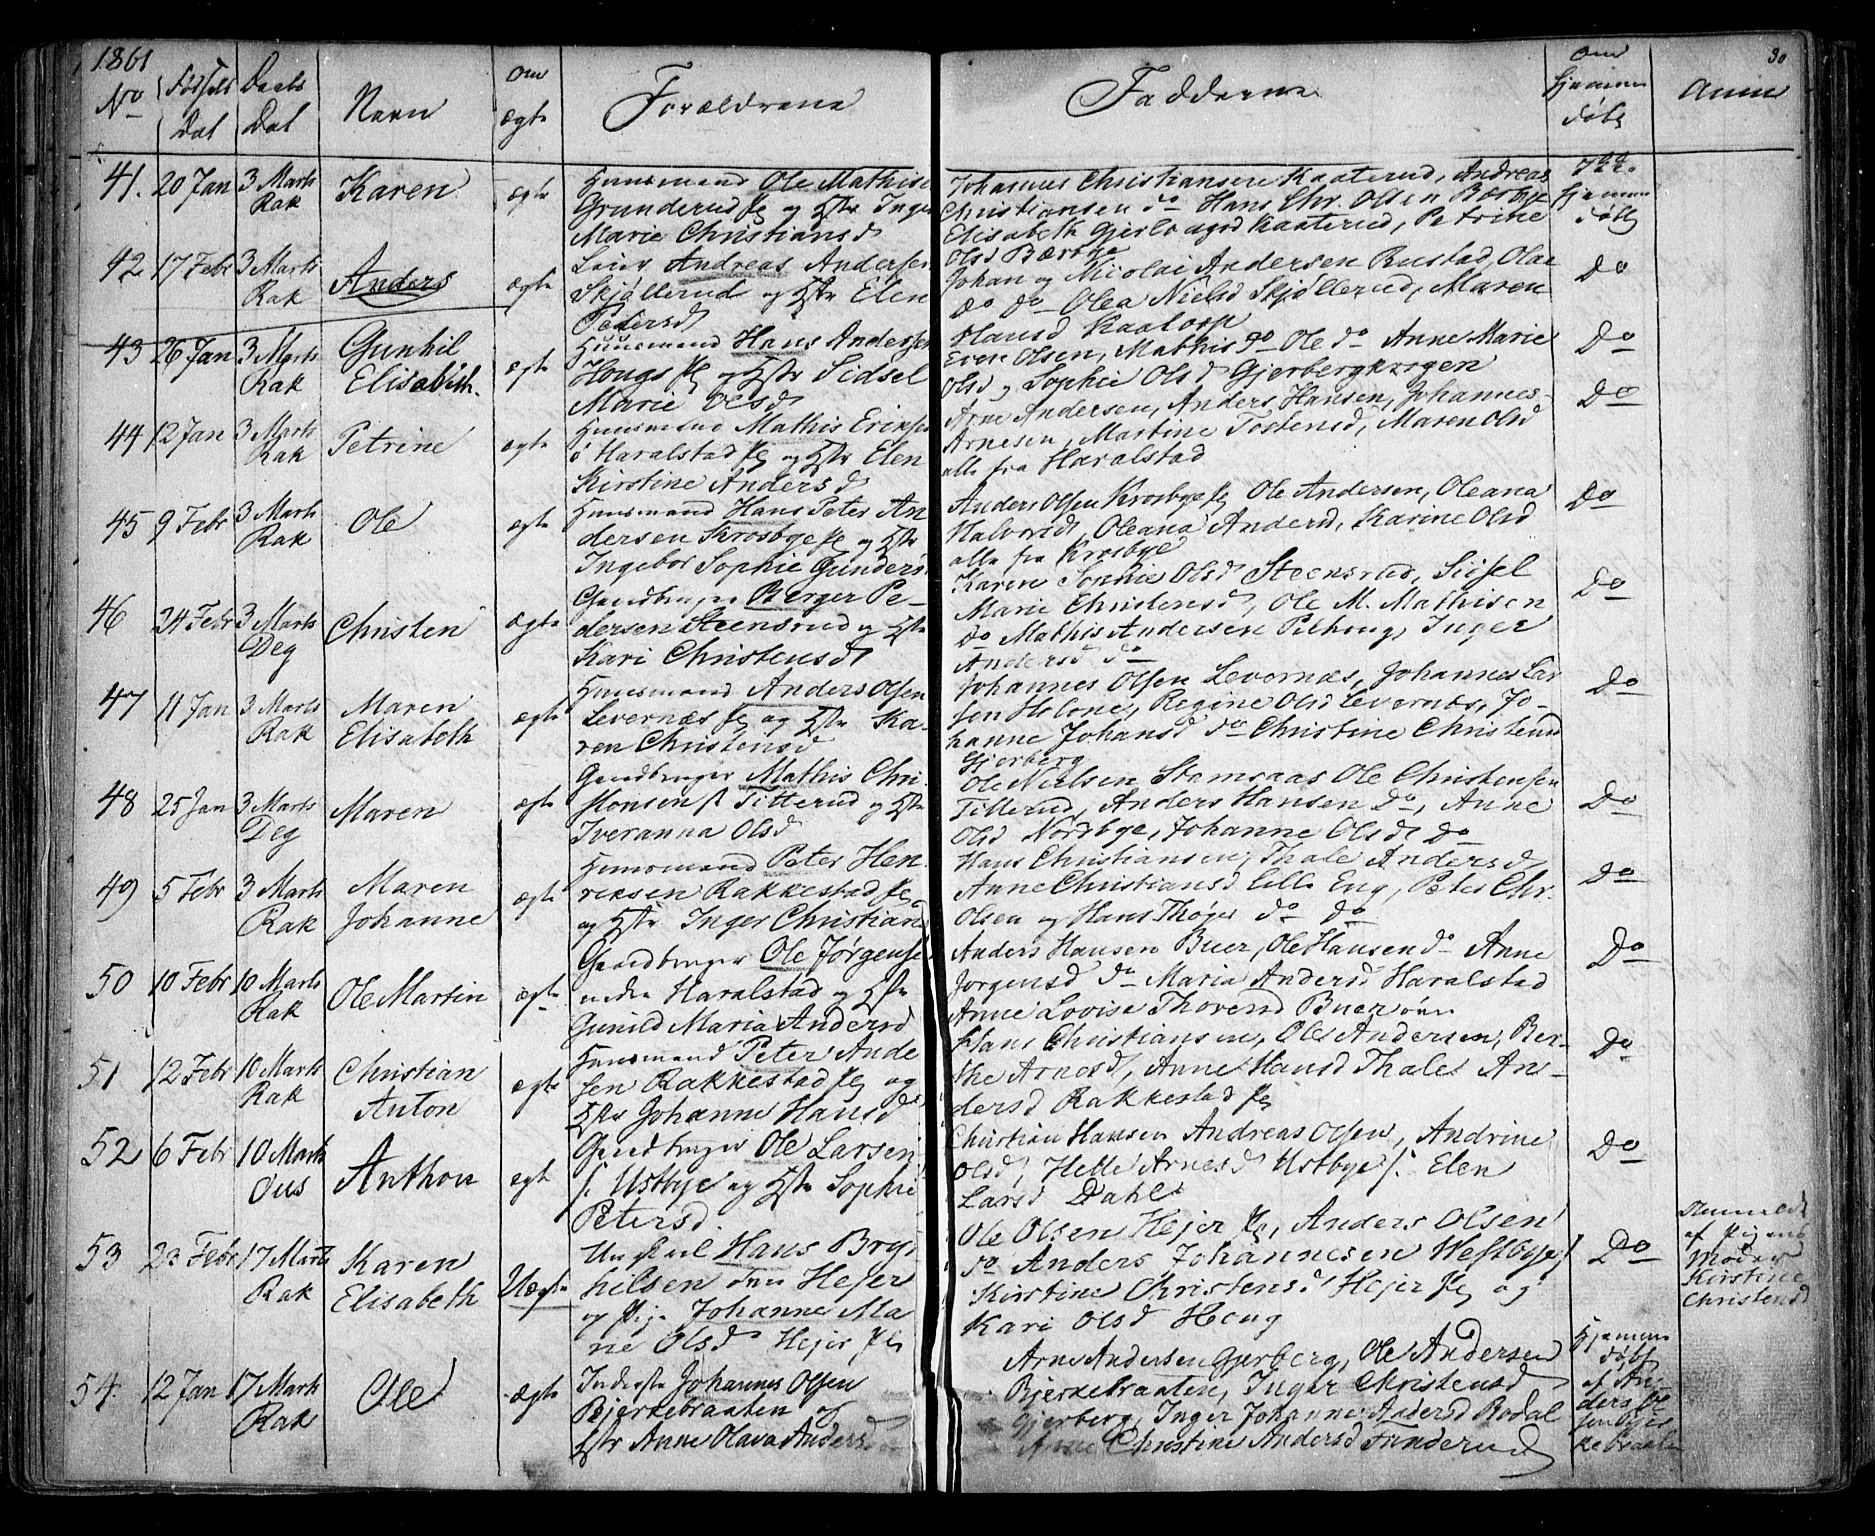 1861 30
No Fødsels Dat Daabs Dat Navn Om ægte Forældrene Fadderne Om hjemmedøbt Anm
41. 20 Jan 3 Marts Rak Karen ægte
Huusmand Ole Mathis
Grunderud og Hstr Inger
Marie Christiansd
Johannes Christiansen Kaaterud, Andreas
Christiansen do Hans Chr. Olsen Bærbye
Elisabeth Kaaterud, Petrine
Olsd Bærbye
hjemmedøbt
42 17 Febr 3 Marts Rak Anders ægte
Andreas Andersen
Skjøllerud og Hstr Elen
Pedersd
Johan og Nicolai Andersen Rustad, Olea
do do Olea Nielsd Skjøllerud, Maren
Hansd Kaatorp
Do
43 26 Jan 3 Marts Rak Gunhil Elisabeth. ægte
Huusmand Hans Andersen
Houg og Hstr Sidsel
Marie Olsd
Even Olsen, Mathis do Ole do Anne Marie
Olsd, Sophie Olsd
Do
44 12 Jan 3 Marts Rak Petrine ægte
Huusmand Mathis Eriksen
Haralstad og Hstr Elen
Kirstine Andersd
Arne Andersen, Anders Hansen, Johannes
Arnesen, Martine Tostensd, Maren Olsd
alle fra Haralstad
Do
45 9 Febr 3 Marts Rak Ole ægte
Huusmand Hans Peter An
dersen Krosbye og Hstr
Ingebor Sophie Gunders
Anders Olsen Krosbye Ole Andersen, Oleana
Halvorsd, Oleana Andersd, Karine Olsd
alle fra Krosbye
Do
46 24 Febr 3 Marts Deg Christen ægte
Gaardbruger Berger Pe-
dersen Steensrud og Hstr
Kari Christensd
Karen Sophie Olsd Steensrud, Sidsel
Marie Christensd, Ole M. Mathisen
do Mathis Andersen Pilhoug, Inger
Andersd do
Do
47 11 Jan 3 Marts Rak Maren Elisabeth ægte
Huusmand Anders Olsen
Levernæs og Hstr Ka-
ren Christensd
Johannes Olsen Levernæs, Johannes Lar
sen Holone, Regine Olsd Levernæs, Jo-
hanne Johansd do Christine Christensd
Gjerberg
Do
48 25 Jan 3 Marts Deg Maren ægte
Gaardbruger Mathis Chri
stensen Titterud og Hstr
Iveranna Olsd
Ole Nielsen Ole Christensen
Titterud, Anders Hansen do, Anne
Olsd Nordbye, Johanne Olsd Do
Do
49 5 Febr 3 Marts Rak Maren Johanne ægte
Huusmand Peter Hen
riksen Rakkestad
og Hstr Inger Christian
Hans Christiansen, Thale Andersd
Anne Christiansd Lille Eng, Peter Chr.
Olsen og Hans Thøger do do
Do
50 10 Febr 10 Marts Rak Ole Martin ægte
Gaardbruger Ole Jørgense
nedre Haralstad og Hstr
Gunild Maria Andersd
Anders Hansen Buer, Ole Hansen do Anne
Jørgensd do Maria Andersd Haralstad
Anne Lovise Thorensd Buer
Do
51 12 Febr 10 Marts Rak Christian Anton ægte
Huusmand Peter Ande
sen Rakkestad og
Hstr Johanne Hansd
Hans Christiansen, Ole Andersen, Ber-
the Arnesd, Anne Hansd Thale An-
dersd Rakkestad
Do
52 6 Febr 10 Marts Ous Anthon ægte
Gaardbruger Ole Larsen
Ustbye og Hstr Sophie
Petersd.
Christian Hansen Andreas Olsen, Andrine
Olsd, Helle Arnesd Ustbye Elen
Larsd Dahl
Do
53 23 Febr 17 Marts Rak Karen Elisabeth Uægte
Ungkarl Hans Bryn
hilsen Hejer
og Pige Johanne Ma
rie Olsd Hejer
Ole Olsen Hejer, Anders Olsen
do Anders Johannesen Westbye
Kirstine Christensd Hejer og
Kari Olsd Houg
Do
Anmeldt
af Pigens
Moder
Kirstine
Christensd
54. 12 Jan 17 Marts Rak Ole ægte
Inderste Johannes Olsen
Bjerkebraaten og
Hstr Anne Olava Andersd
Arne Andersen Gjerberg, Ole Andersen
Bjerkebraaten, Inger Christensd
Gjerberg, Inger Johanne Andersd Rodal
Anne Christine Andersd Funderud
Hjemme
døbt
af An-
ders Ol
sen Bjer
kebraaten